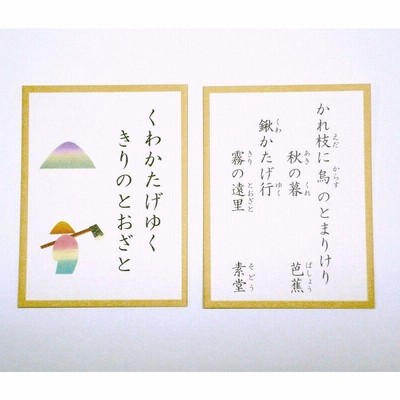 えだ からす
かれ枝に烏のとまりけり
あき くれ ばしょう
秋の暮 芭蕉
くわ ゆく
鍬かたげ行
きり とおざと そどう
霧の遠里 素堂
くわかたげゆく
きりのとおざと